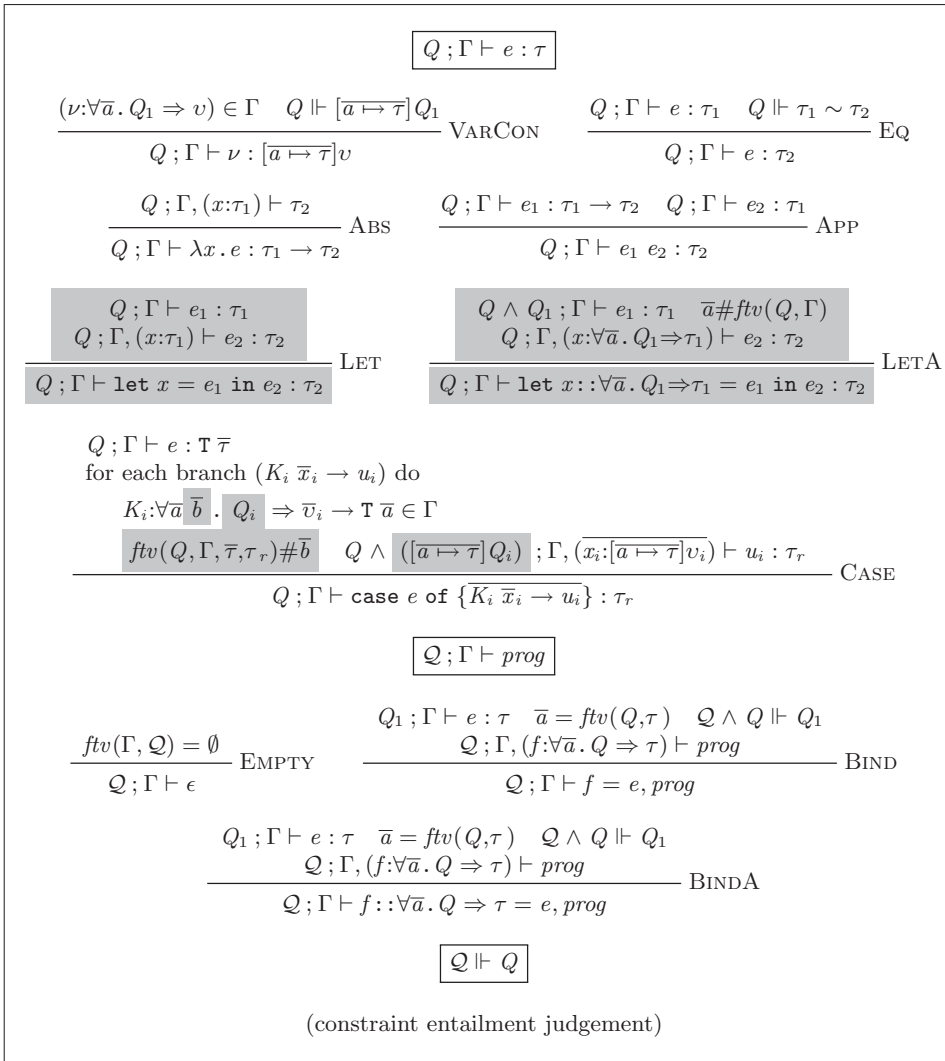 Q ; Γ ⊢ e : τ
(ν:∀a̅ . Q₁ ⇒ υ) ∈ Γ    Q ⊩ [a̅ ↦ τ̅]Q₁
Q ; Γ ⊢ ν : [a̅ ↦ τ̅]υ
VarCon
Q ; Γ ⊢ e : τ₁    Q ⊩ τ₁ ∼ τ₂
Q ; Γ ⊢ e : τ₂
Eq
Q ; Γ, (x:τ₁) ⊢ τ₂
Q ; Γ ⊢ λx . e : τ₁ → τ₂
Abs
Q ; Γ ⊢ e₁ : τ₁ → τ₂    Q ; Γ ⊢ e₂ : τ₁
Q ; Γ ⊢ e₁ e₂ : τ₂
App
Q ; Γ ⊢ e₁ : τ₁
Q ; Γ, (x:τ₁) ⊢ e₂ : τ₂
Q ; Γ ⊢ let x = e₁ in e₂ : τ₂
Let
Q ∧ Q₁ ; Γ ⊢ e₁ : τ₁    a̅#ftv(Q, Γ)
Q ; Γ, (x:∀a̅ . Q₁⇒τ₁) ⊢ e₂ : τ₂
Q ; Γ ⊢ let x::∀a̅ . Q₁⇒τ₁ = e₁ in e₂ : τ₂
LetA
Q ; Γ ⊢ e : T τ̅
for each branch (Kᵢ x̅ᵢ → uᵢ) do
Kᵢ:∀a̅ b̅ . Qᵢ ⇒ υ̅ᵢ → T a̅ ∈ Γ
ftv(Q, Γ, τ̅, τᵣ)#b̅    Q ∧ ([a̅ ↦ τ̅]Qᵢ) ; Γ, (xᵢ:[a̅ ↦ τ̅]υᵢ) ⊢ uᵢ : τᵣ
Q ; Γ ⊢ case e of {Kᵢ x̅ᵢ → uᵢ} : τᵣ
Case
𝒬 ; Γ ⊢ prog
ftv(Γ, 𝒬) = ∅
𝒬 ; Γ ⊢ ϵ
Empty
Q₁ ; Γ ⊢ e : τ    a̅ = ftv(Q,τ)    𝒬 ∧ Q ⊩ Q₁
𝒬 ; Γ, (f:∀a̅ . Q ⇒ τ) ⊢ prog
𝒬 ; Γ ⊢ f = e, prog
Bind
Q₁ ; Γ ⊢ e : τ    a̅ = ftv(Q,τ)    𝒬 ∧ Q ⊩ Q₁
𝒬 ; Γ, (f:∀a̅ . Q ⇒ τ) ⊢ prog
𝒬 ; Γ ⊢ f::∀a̅ . Q ⇒ τ = e, prog
BindA
𝒬 ⊩ Q
(constraint entailment judgement)